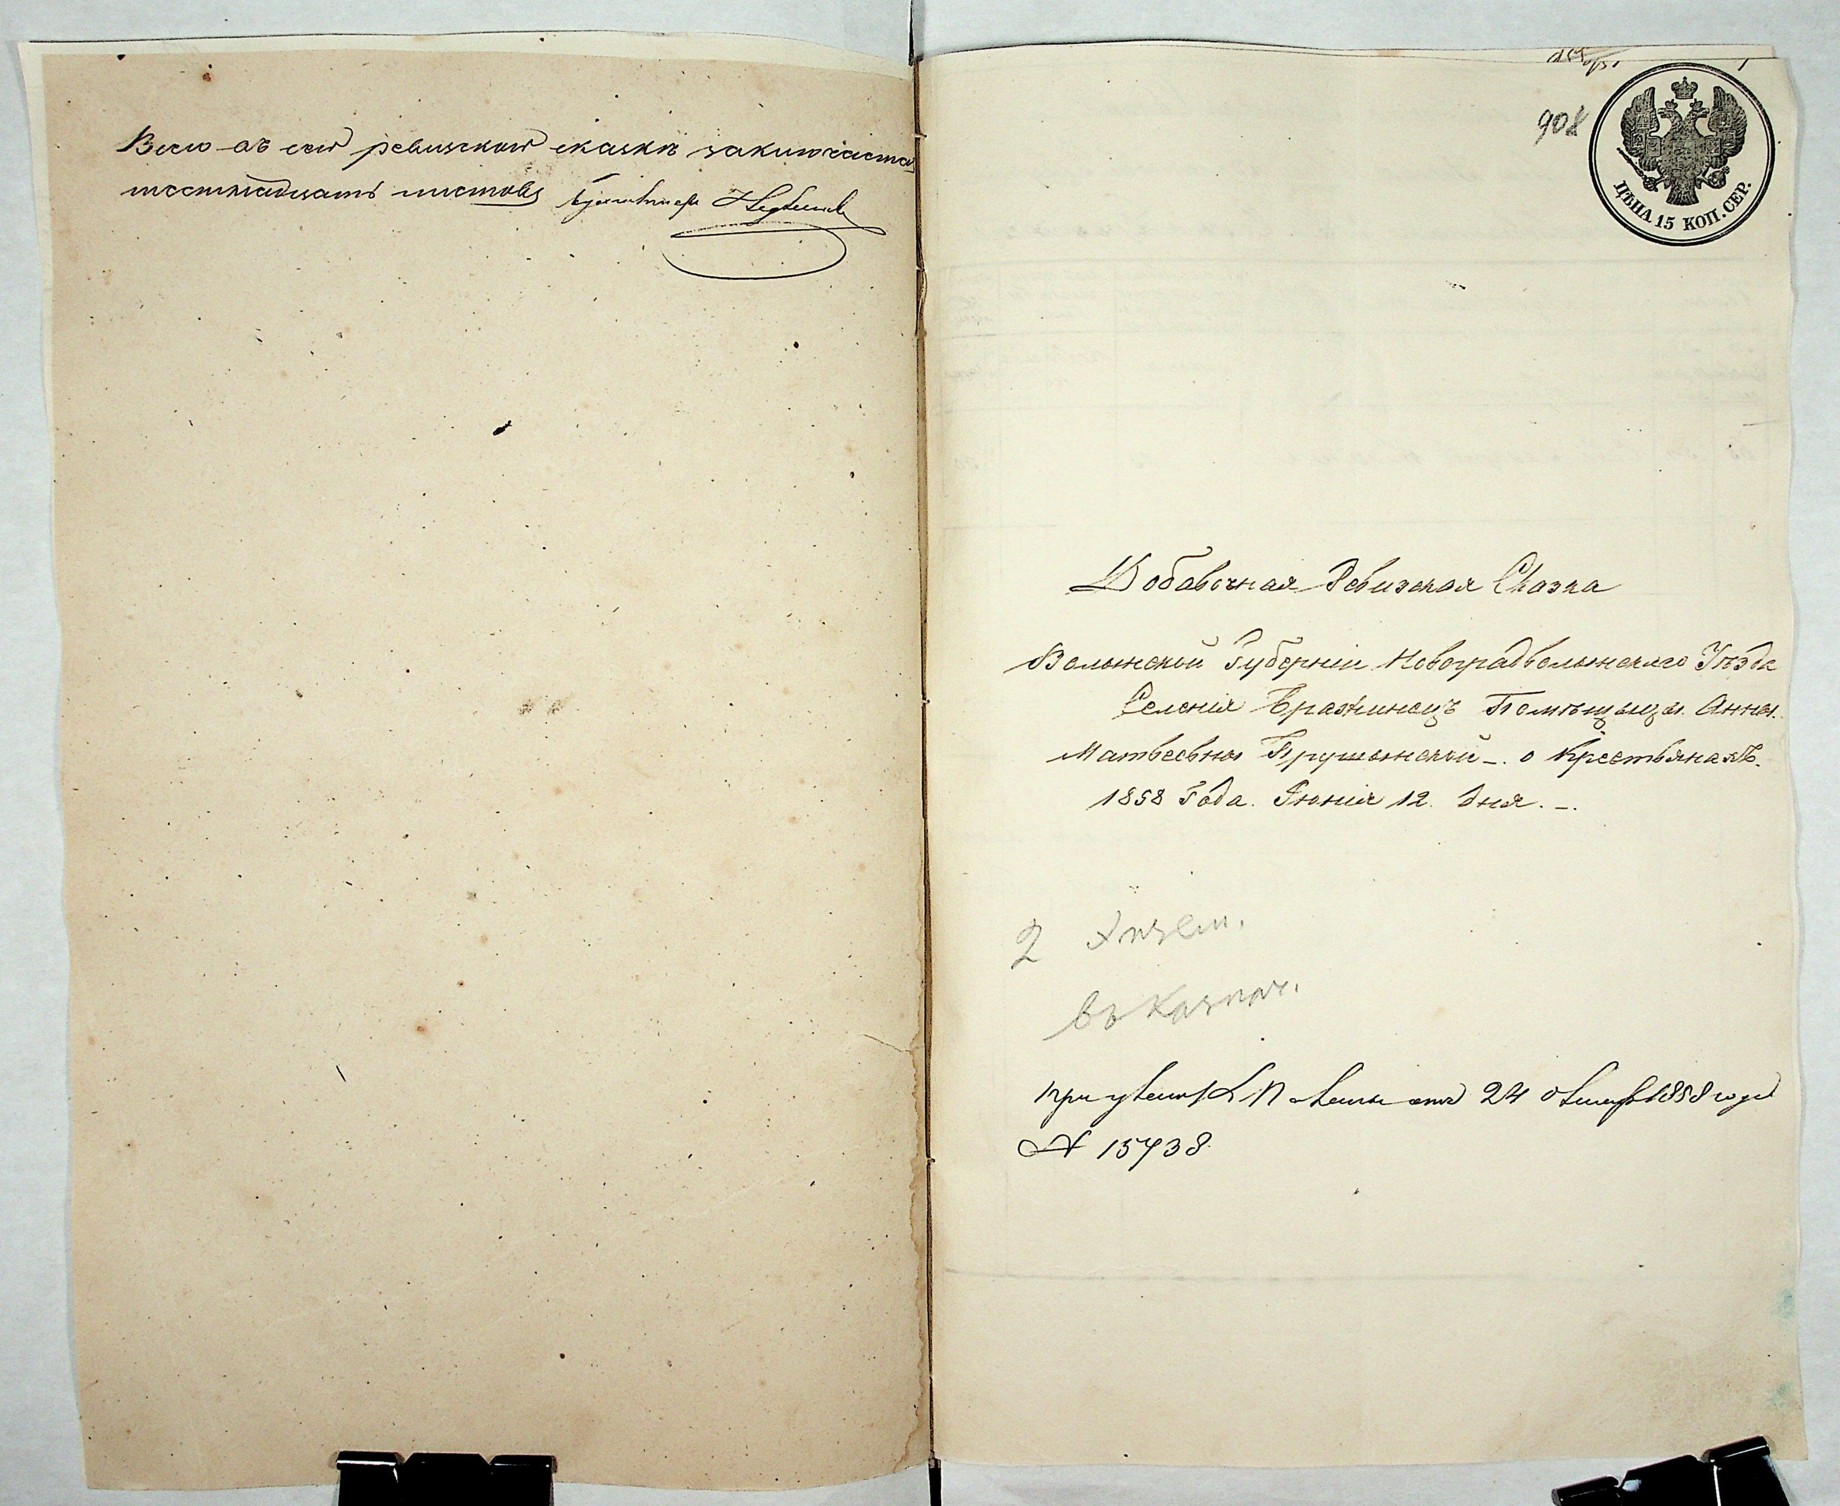 Всего въ сей ревизской сказкѣ заключается
шестнадцать листовъ Бухгалтеръ
908
1
ЦѢНА 15 КОП. СЕР.
Добавочная Ревизская Сказка
Волынской Губерніи Новоградволынскаго Уѣзда
Селенія Бражинецъ Помѣщицы Анны
Матвеевны Прушинской о Крестьянахъ
1858 Года. Іюнія 12. дня.
2 Экзем.
Въ Казнач.
при указѣ К. П. отъ 24 Октября 1858 года
№ 15738